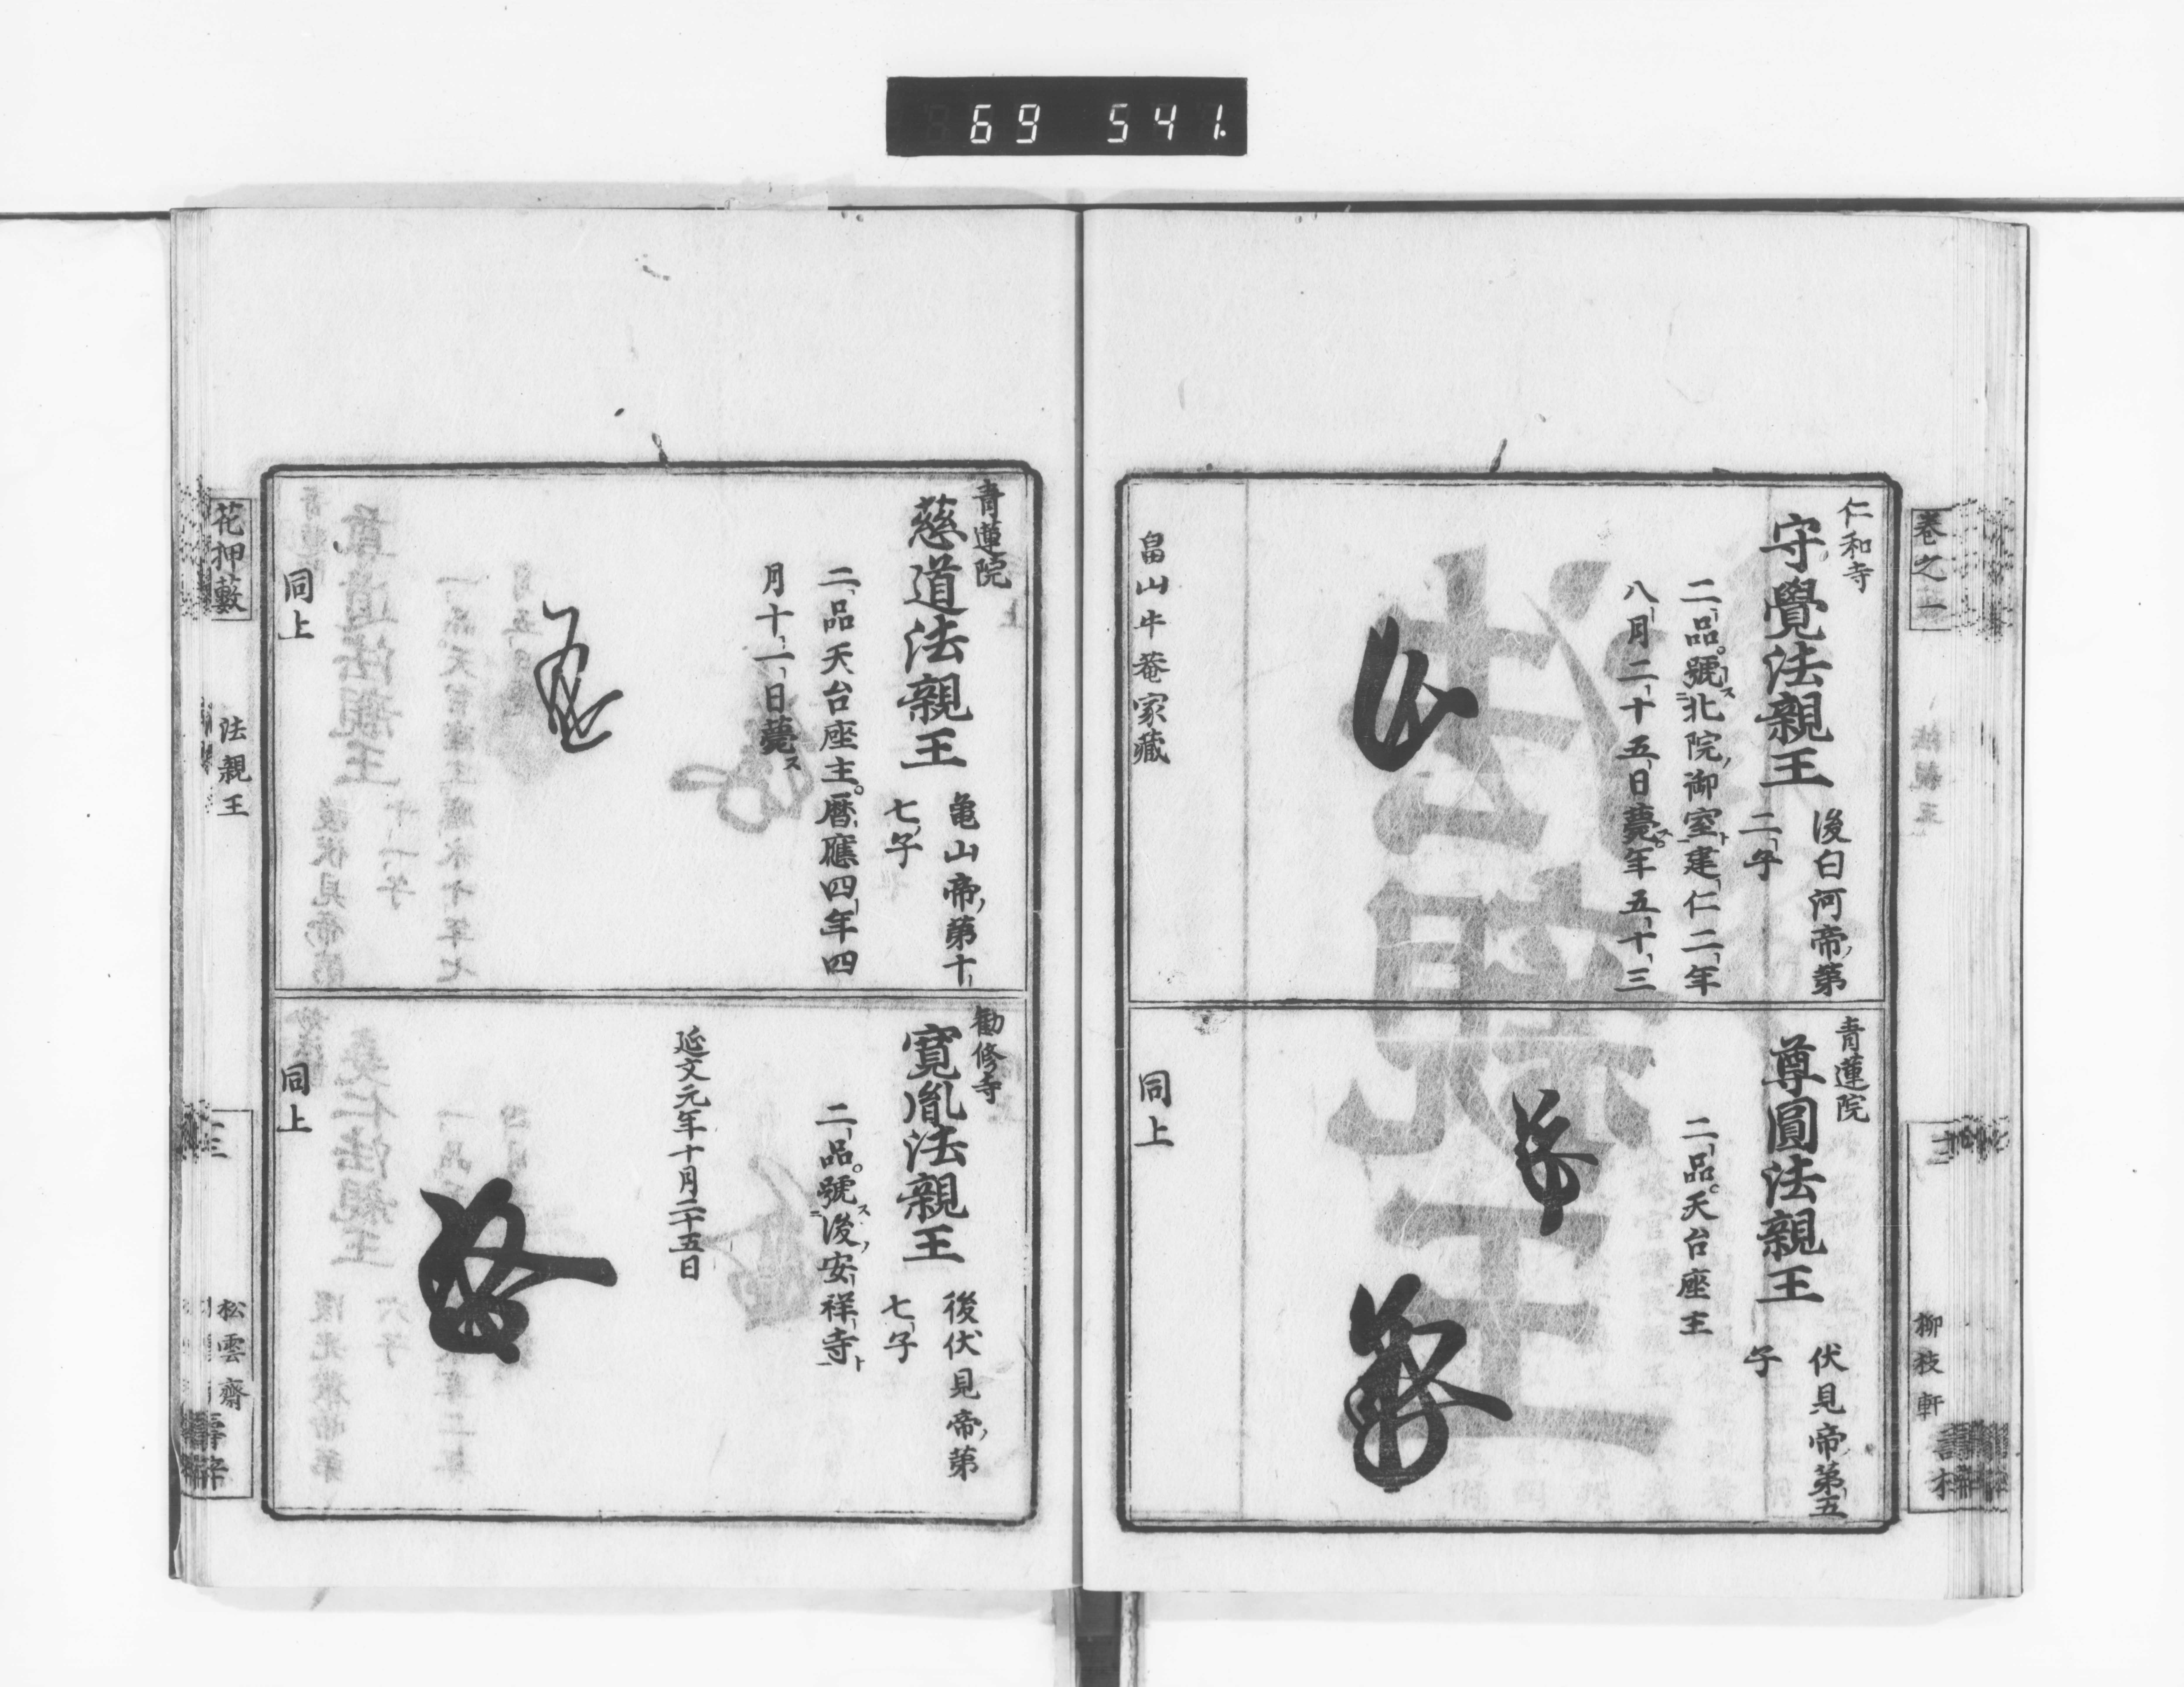 69 541.
卷之一
柳枝軒
仁和寺
守覺法親王
後白河帝ノ第
二ノ子
二品。號ス北院ノ御室ト建仁二年
八月二十五日薨ス。年五十三
畠山牛菴家藏
青蓮院
尊圓法親王
伏見帝第五
子
二品。天台座主
同上
青蓮院
慈道法親王
亀山帝ノ第十
七ノ子
二品天台座主。暦應四年四
月十一日薨ス
同上
勸修寺
寛胤法親王
後伏見帝ノ第
七ノ子
二品。號ス後ノ安祥寺ト
延文元年十月二十五日
同上
花押藪
法親王
三
松雲齋